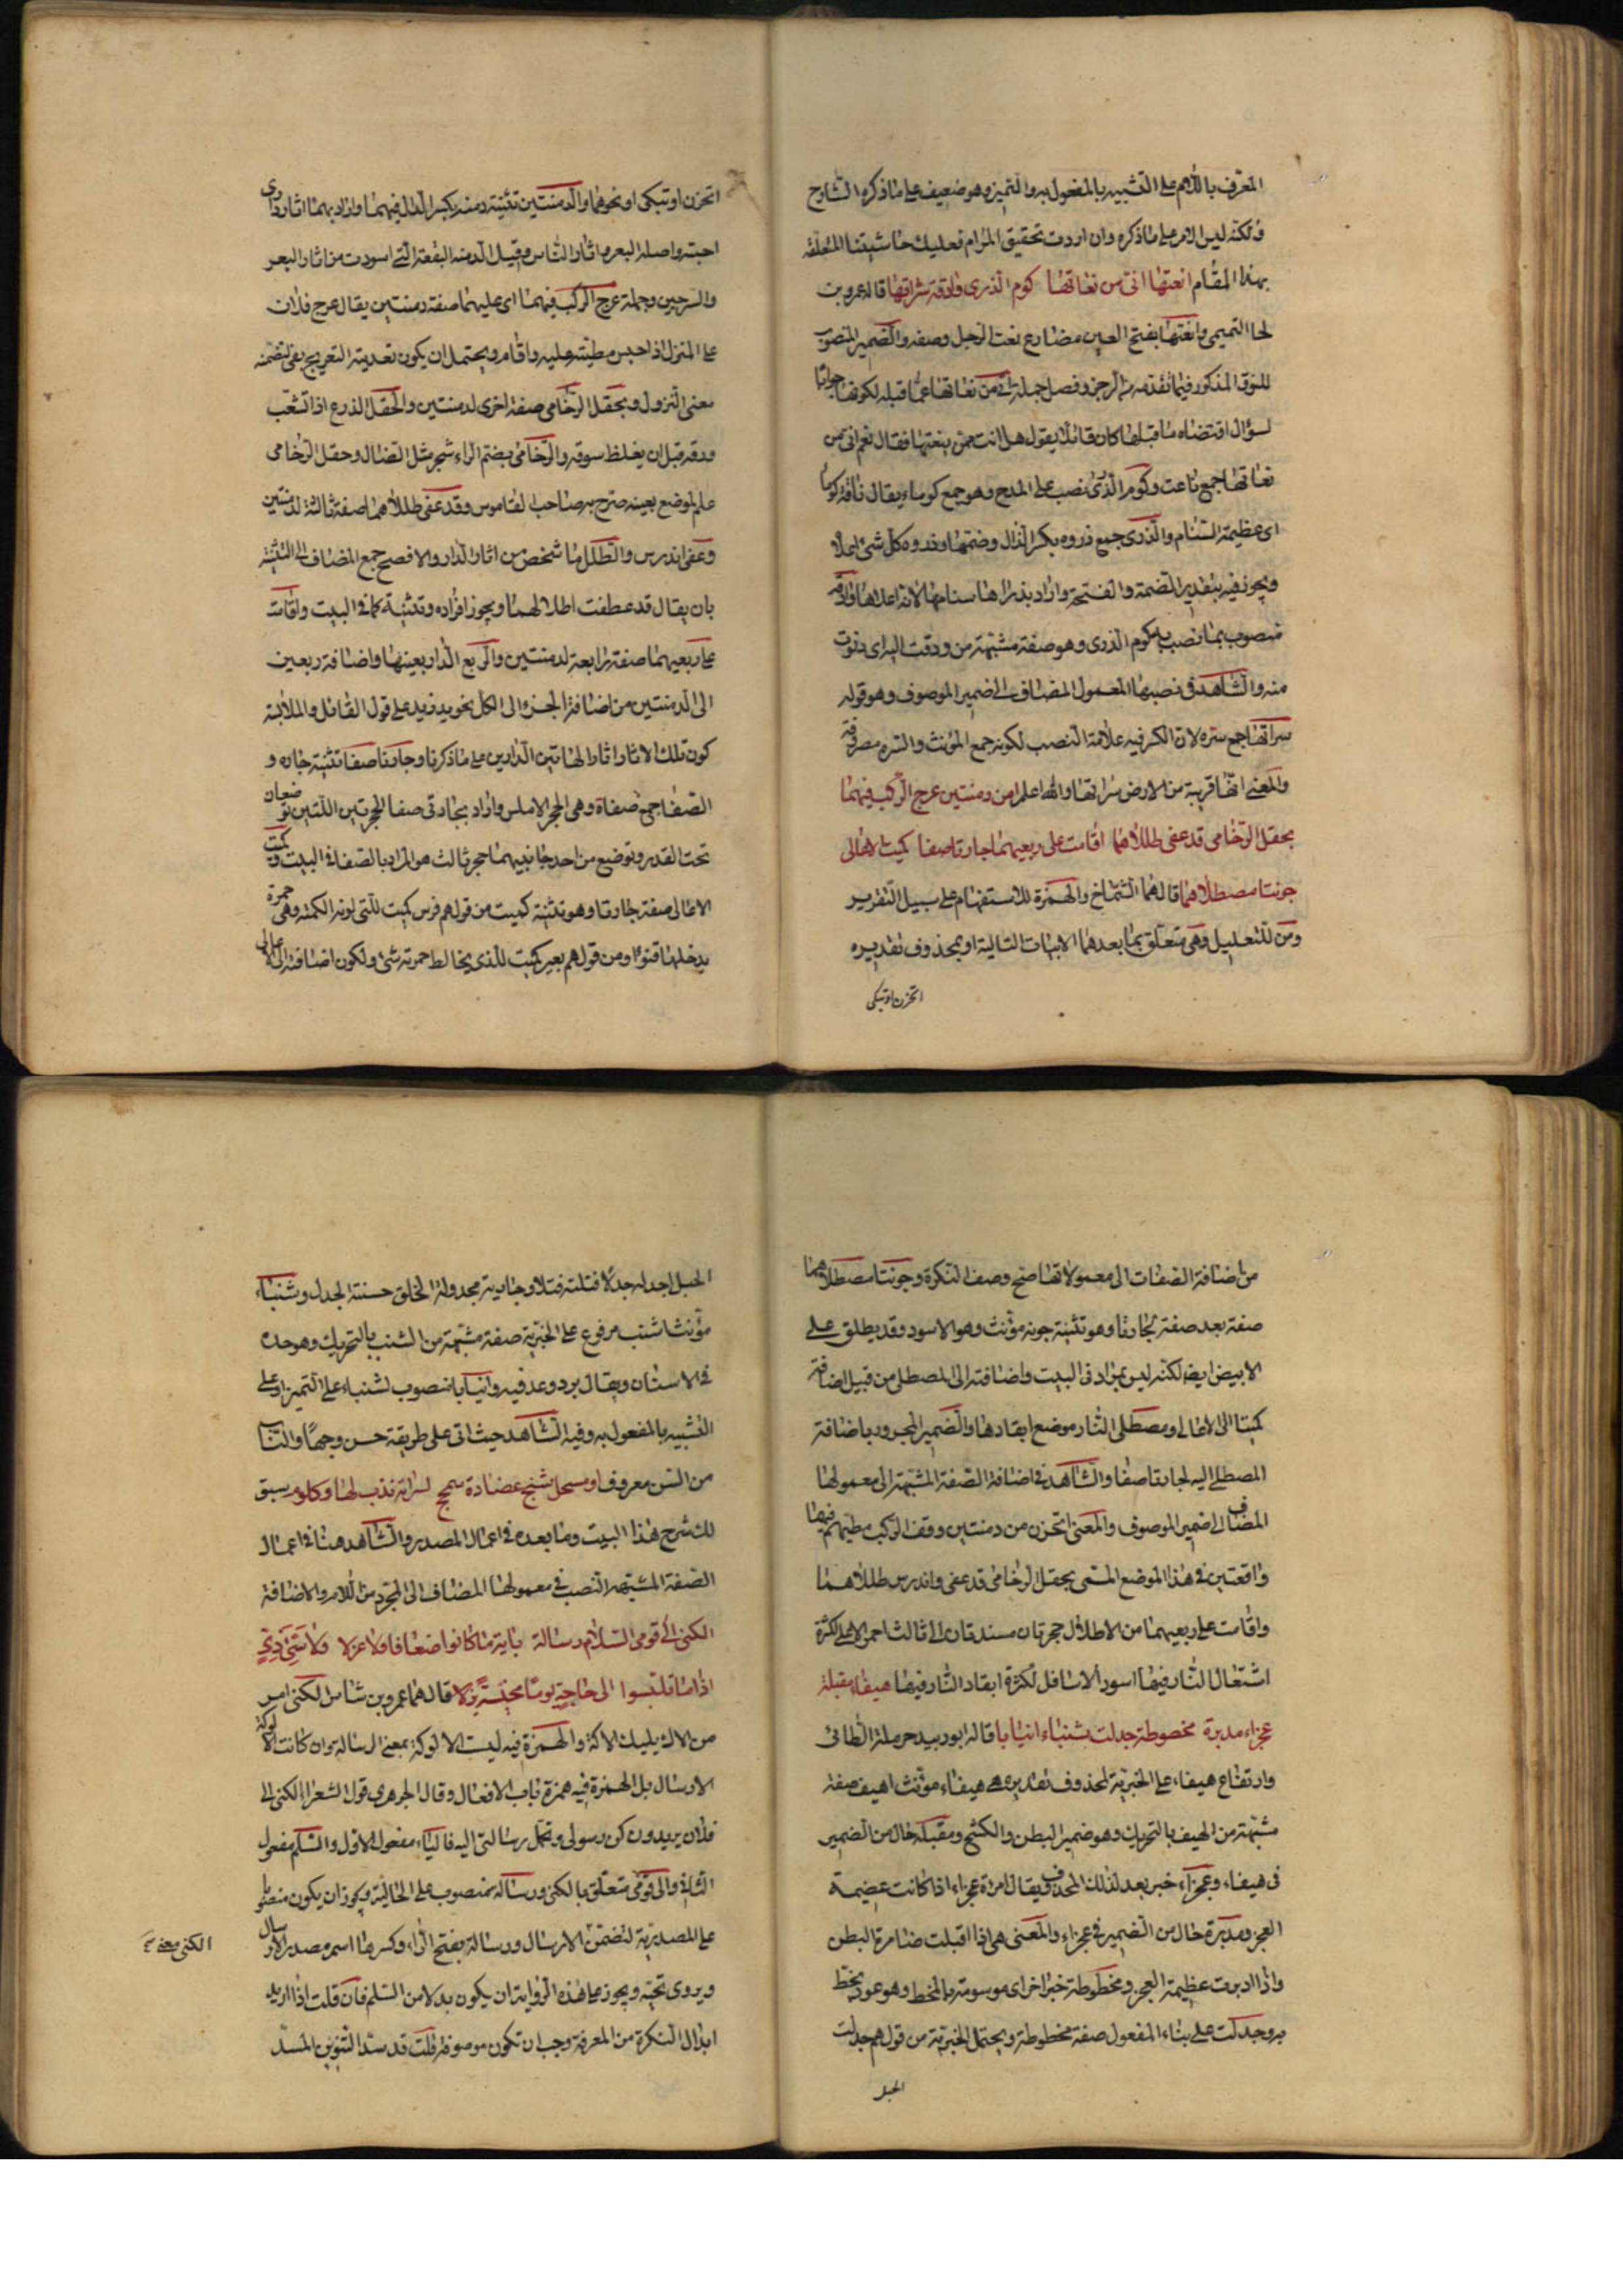 المعرف باللام على التشبيه بالمفعول به والتميز وهو ضعيف على ما ذكره الشارح
ولكنه ليس الامر على ما ذكره وان اردت تحقيق المرام فعليك حاشيتنا المتعلقة
بهذا المقام انعتها انى من نعاتها كوم الذرى وادقة سراتها قاله عمرو بن
لحا التميمى وانعتها بفتح العين مضارع نعت الرجل وصفه والضمير المنصوب
للنوق المذكور فيما تقدمه من الرجز وفصل جملة انى من نعاتها عما قبله لكونها جوابا
لسؤال اقتضاه ما قبلها كان قائلا يقول هل انت ممن ينعتها فقال نعم انى من
نعاتها جمع ناعت وكوم الذرى نصب على المدح وهو جمع كوماء يقال ناقة كوما
اى عظيمة السنام والذرى جمع ذروه بكسر الذال وضمها وذروه كل شئ اعلاه
ويجوز فيه بتقدير الضمة والفتحة واراد بذراها سنامها لانه اعلاها وادقة
منصوب بما نصب به كوم الذرى وهو صفة مشبهة من ودقت اليه اى دنوت
منه والشاهد فى نصبها المعمول المضاف الى ضمير الموصوف وهو قوله
سراتها جمع سره لان الكسر فيه علامة النصب لكونه جمع المؤنث والسره معروفة
والمعنى انها قريبة من الارض سراتها والله اعلم امن دمنتين عرج الركب فيهما
بحقل الرخامى قد عفى طللاهما اقامت على ربعيهما جارتا صفا كميتا الاعالى
جونتا مصطلاهما قالهما الشماخ والهمزة للاستفهام على سبيل التقرير
ومن للتعليل وهى متعلق بما بعدهما الابيات التالية او بمحذوف تقديره
اتحزن او تبكى
اتحزن او تبكى او نحوهما والدمنتين تثنية دمنه بكسر الدال فيهما واراد بهما اثار دارى
احبته واصله البعر واثار الناس وقيل الدمنه البقعة التى اسودت من اثار البعر
والسرجين وجملة عرج الركب فيهما اى عليهما صفة دمنتين يقال عرج فلان
على المنزل اذا حبس مطيته عليه واقام ويحتمل ان يكون تعديته التعريج بفى لتضمنه
معنى النزول وبحقل الرخامى صفة اخرى لدمنتين والحقل الذرع اذا تشعب
ورقه قبل ان يغلظ سوقه والرخامى بضم الراء شجر مثل الضال وحقل الرخامى
علم لموضع بعينه صرح به صاحب القاموس وقد عفى طللاهما صفة ثالثة لدمنتين
وعفى اندرس والطلل ما شخص من اثار الدار والافصح جمع المضاف الى التثنية
بان يقال قد عطفت اطلالهما ويجوز افراده وتثنية كما فى البيت واقامت
على ربعيهما صفة رابعة لدمنتين والربع الدار بعينها واضافة ربعين
الى الدمنتين من اضافة الجزء الى الكل نحو يد زيد على قول القائل والملابسة
كون تلك الاثار اثارا لهاتين الدارين على ما ذكرنا وجارتا صفا تثنية جاره و
الصفا جمع صفاة وهى الحجر الاملس واراد بجارتى صفا الحجرتين اللتين توضعان
تحت القدر وتوضيع من احد جانبيهما حجر ثالث هو المراد بالصفا فى البيت وكميت
الاعالى صفة جارتا وهو تثنية كميت من قولهم فرس كميت للتى لونه الكمته وهى حمرة
يدخلها قنوء ومن قولهم بعير كميت للذى يخالط حمرته شئ ولكون اضافته الى الاعالى
من اضافة الصفات الى معمولاتها صح وصف النكرة وجونتا مصطلاهما
صفة بعد صفة لجارتا وهو تثنية جونه مؤنث وهو الاسود وقد يطلق على
الابيض ايضا لكنه ليس بمراد فى البيت واضافته الى المصطلى من قبيل اضافة
كميتا الى الاعالى ومصطلى النار موضع ايقادها والضمير المجرور باضافة
المصطلى اليه لجارتا صفا والشاهد فى اضافة الصفة المشبهة الى معمولها
المضاف الى ضمير الموصوف والمعنى اتحزن من دمنتين ووقف الركب مطيهم فيهما
واقعتين فى هذا الموضع المسمى بحقل الرخامى قد عفى واندرس طللاهما
واقامت على ربعيهما من الاطلال حجرتان مسندتان الى ثالث احمر الاعلى لكثرة
اشتعال النار فيها اسود الاسافل لكثرة ايقاد النار فيها هيفاء مقبلة
عجزاء مدبرة مخصوطة جدلت شنباء انيابا قاله ابو زبيد حرملة الطائى
وارتفاع هيفاء على الخبرية لمحذوف تقديره هى هيفاء مؤنث اهيف صفة
مشبهة من الهيف بالتحريك وهو ضمير البطن والكشح ومقبلة حال من الضمير
فى هيفاء وعجزاء خبر بعد لذلك المحذوف يقال امراة عجزاء اذا كانت عضيمة
العجز ومدبرة حال من الضمير فى عجزاء والمعنى هى اذا اقبلت ضامرة البطن
واذا ادبرت عظيمة العجز ومخطوطة خبر اخر اى موسومة بالمخط وهو عود يخط
به وجدلت على بناء المفعول صفة مخطوطة ويحتمل الخبرية من قولهم جدلت
الحبل
الحبل اجدله جدلا فتلته فتلا وجارية مجدولة الخلق حسنة الجدل وشنباء
مؤنث اشنب مرفوع على الخبرية صفة مشبهة من الشنب بالتحريك وهو حده
فى الاسنان ويقال برد وعد فيه وانيابا منصوب لشنباء على التميز او على
التشبيه بالمفعول به وفيه الشاهد حيث اتى على طريقة حسن وجها والناب
من السن معروف او مسحل شنج عضادة سمحج لسراته ندب لها وكلوم سبق
لك شرح هذا البيت وما بعده فى اعمال المصدر والشاهد هنا فى اعمال
الصفة المشبهة النصب فى معمولها المضاف الى المجرد من اللام والاضافة
الكنى الى قومى السلام رسالة باية ما كانوا ضعافا ولا عزلا ولا سيئى زى
اذا ما تلبسوا الى حاجة يوما مخيسة بزلا قالهما عمرو بن شاس الكنى امر
من الاك يليك الاكة والهمزة فيه ليست الالوكة بمعنى الرسالة وان كانت الالوكة
الارسال بل الهمزة فيه همزة باب الافعال وقال الجوهرى قول الشعراء الكنى الى
فلان يريدون كن رسولى وتحمل رسالتى اليه فالياء مفعول الاول والسلم مفعول
الثانى والى قومى متعلق بالكنى ورسالة منصوب على الحالية ويجوز ان يكون منصوبا
على المصدرية لتضمن الارسال ورسالة بفتح الراء وكسرها اسم مصدر الارسال
الكنى معنى
ويروى تحية ويجوز على هذه الرواية ان يكون بدلا من السلم فان قلت اذا اريد
ابدال النكرة من المعرفة وجب ان تكون موصوفة قلت قد سد التنوين المسد